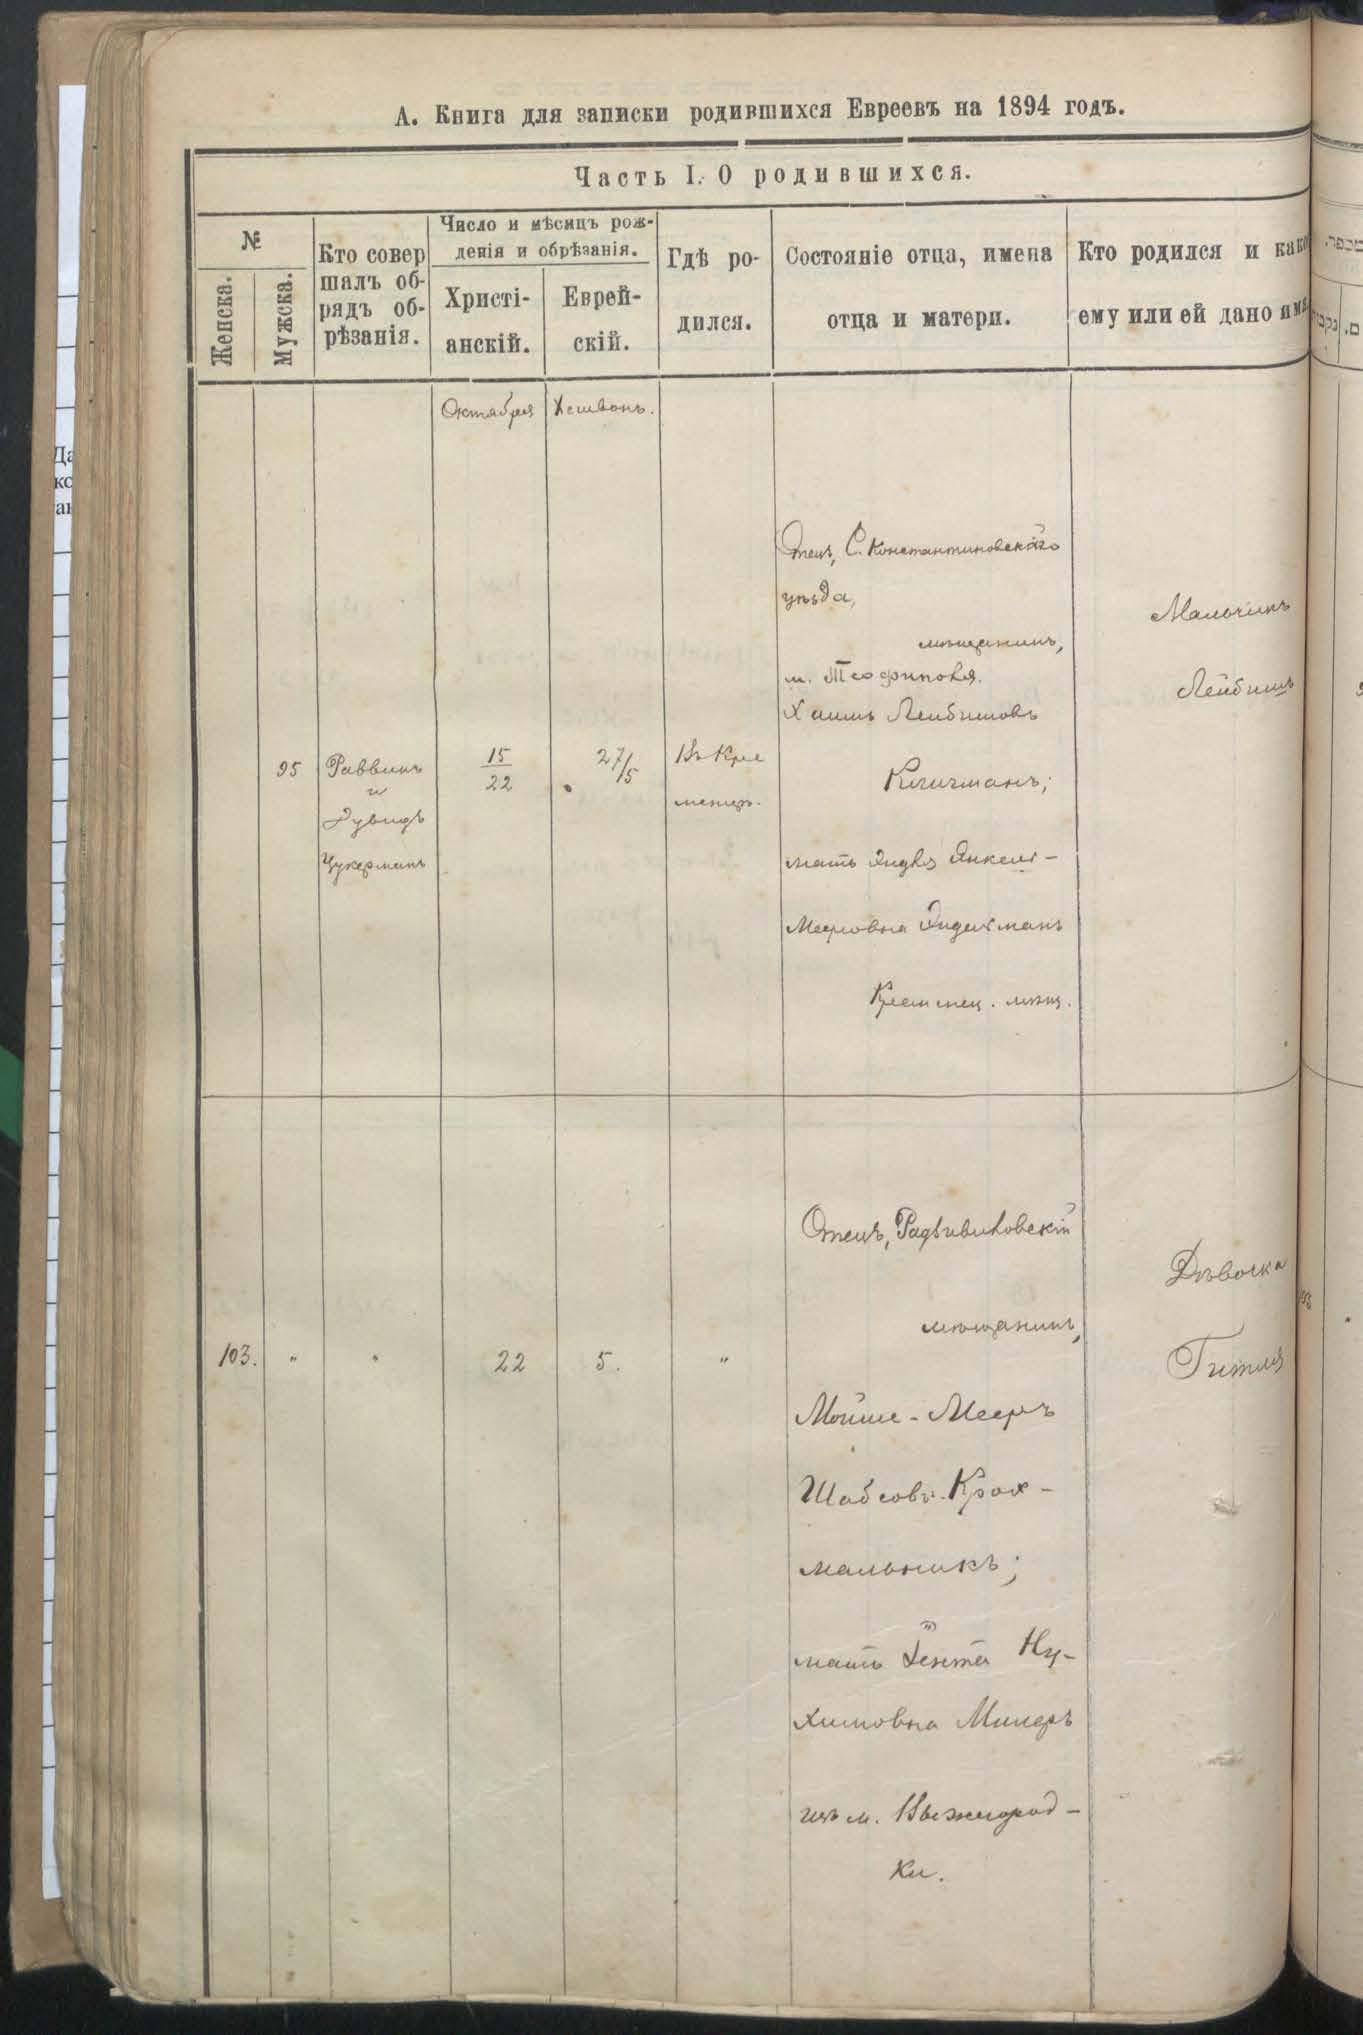 А. Книга для записки родившихся Евреевъ на 1894 годъ.
Часть I. О родившихся.
№
Женска.
Мужска.
Кто совер
шалъ об-
рядъ об-
рѣзанія.
Число и мѣсяцъ рож-
денія и обрѣзанія.
Христі-
анскій.
Еврей-
скій.
Гдѣ ро-
дился.
Состояніе отца, имена
отца и матери.
Кто родился и како
ему или ей дано имя
Октября
Хешвонъ.
95
Раввинъ
и
Дувидъ
Цукерманъ
15
22
27/5
Въ Кре
менцѣ.
Отецъ, С. Константиновскаго
уѣзда,
мѣщанинъ,
м. Теофиполя.
Хаимъ Лейбишовъ
мать Янкель-
Мееровна
Кременец. мѣщ.
Мальчикъ
Лейбишъ
103.
"
"
22
5.
"
Отецъ, Радзивиловскій
мѣщанинъ,
Мойше-Мееръ
Шабсовъ Крох-
мальникъ;
мать Ента Ну-
химовна Милеръ
изъ м. Вышгород-
ки.
Дѣвочка
Гитля